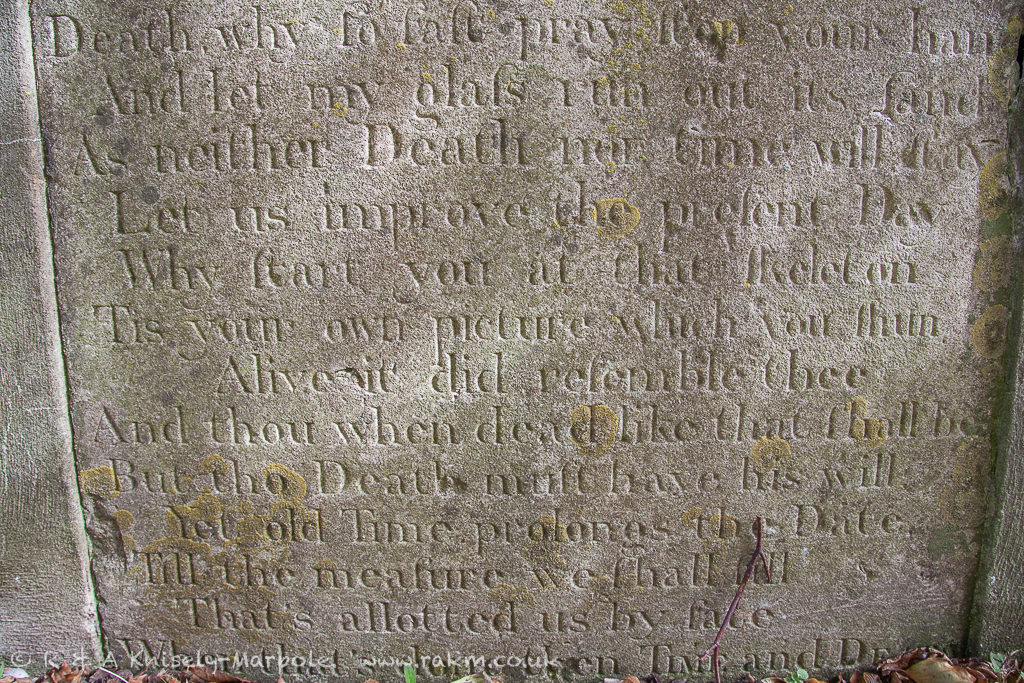 Death, why ſo faſt pray ſtop your han
And let my glaſs run out its ſand
As neither Death nor time will ſtay
Let us improve the preſent Day
Why ſtart you at that ſkeleton
Tis your own picture which you ſhun
Alive it did reſemble thee
And thou when dead like that ſhall be
But tho Death muſt have his will
Yet old Time prolongs the Date
Till the meaſure we ſhall fill
That's allotted us by fate
When that's done then Time and De
© R & A Knisely-Marpole, www.rakm.co.uk